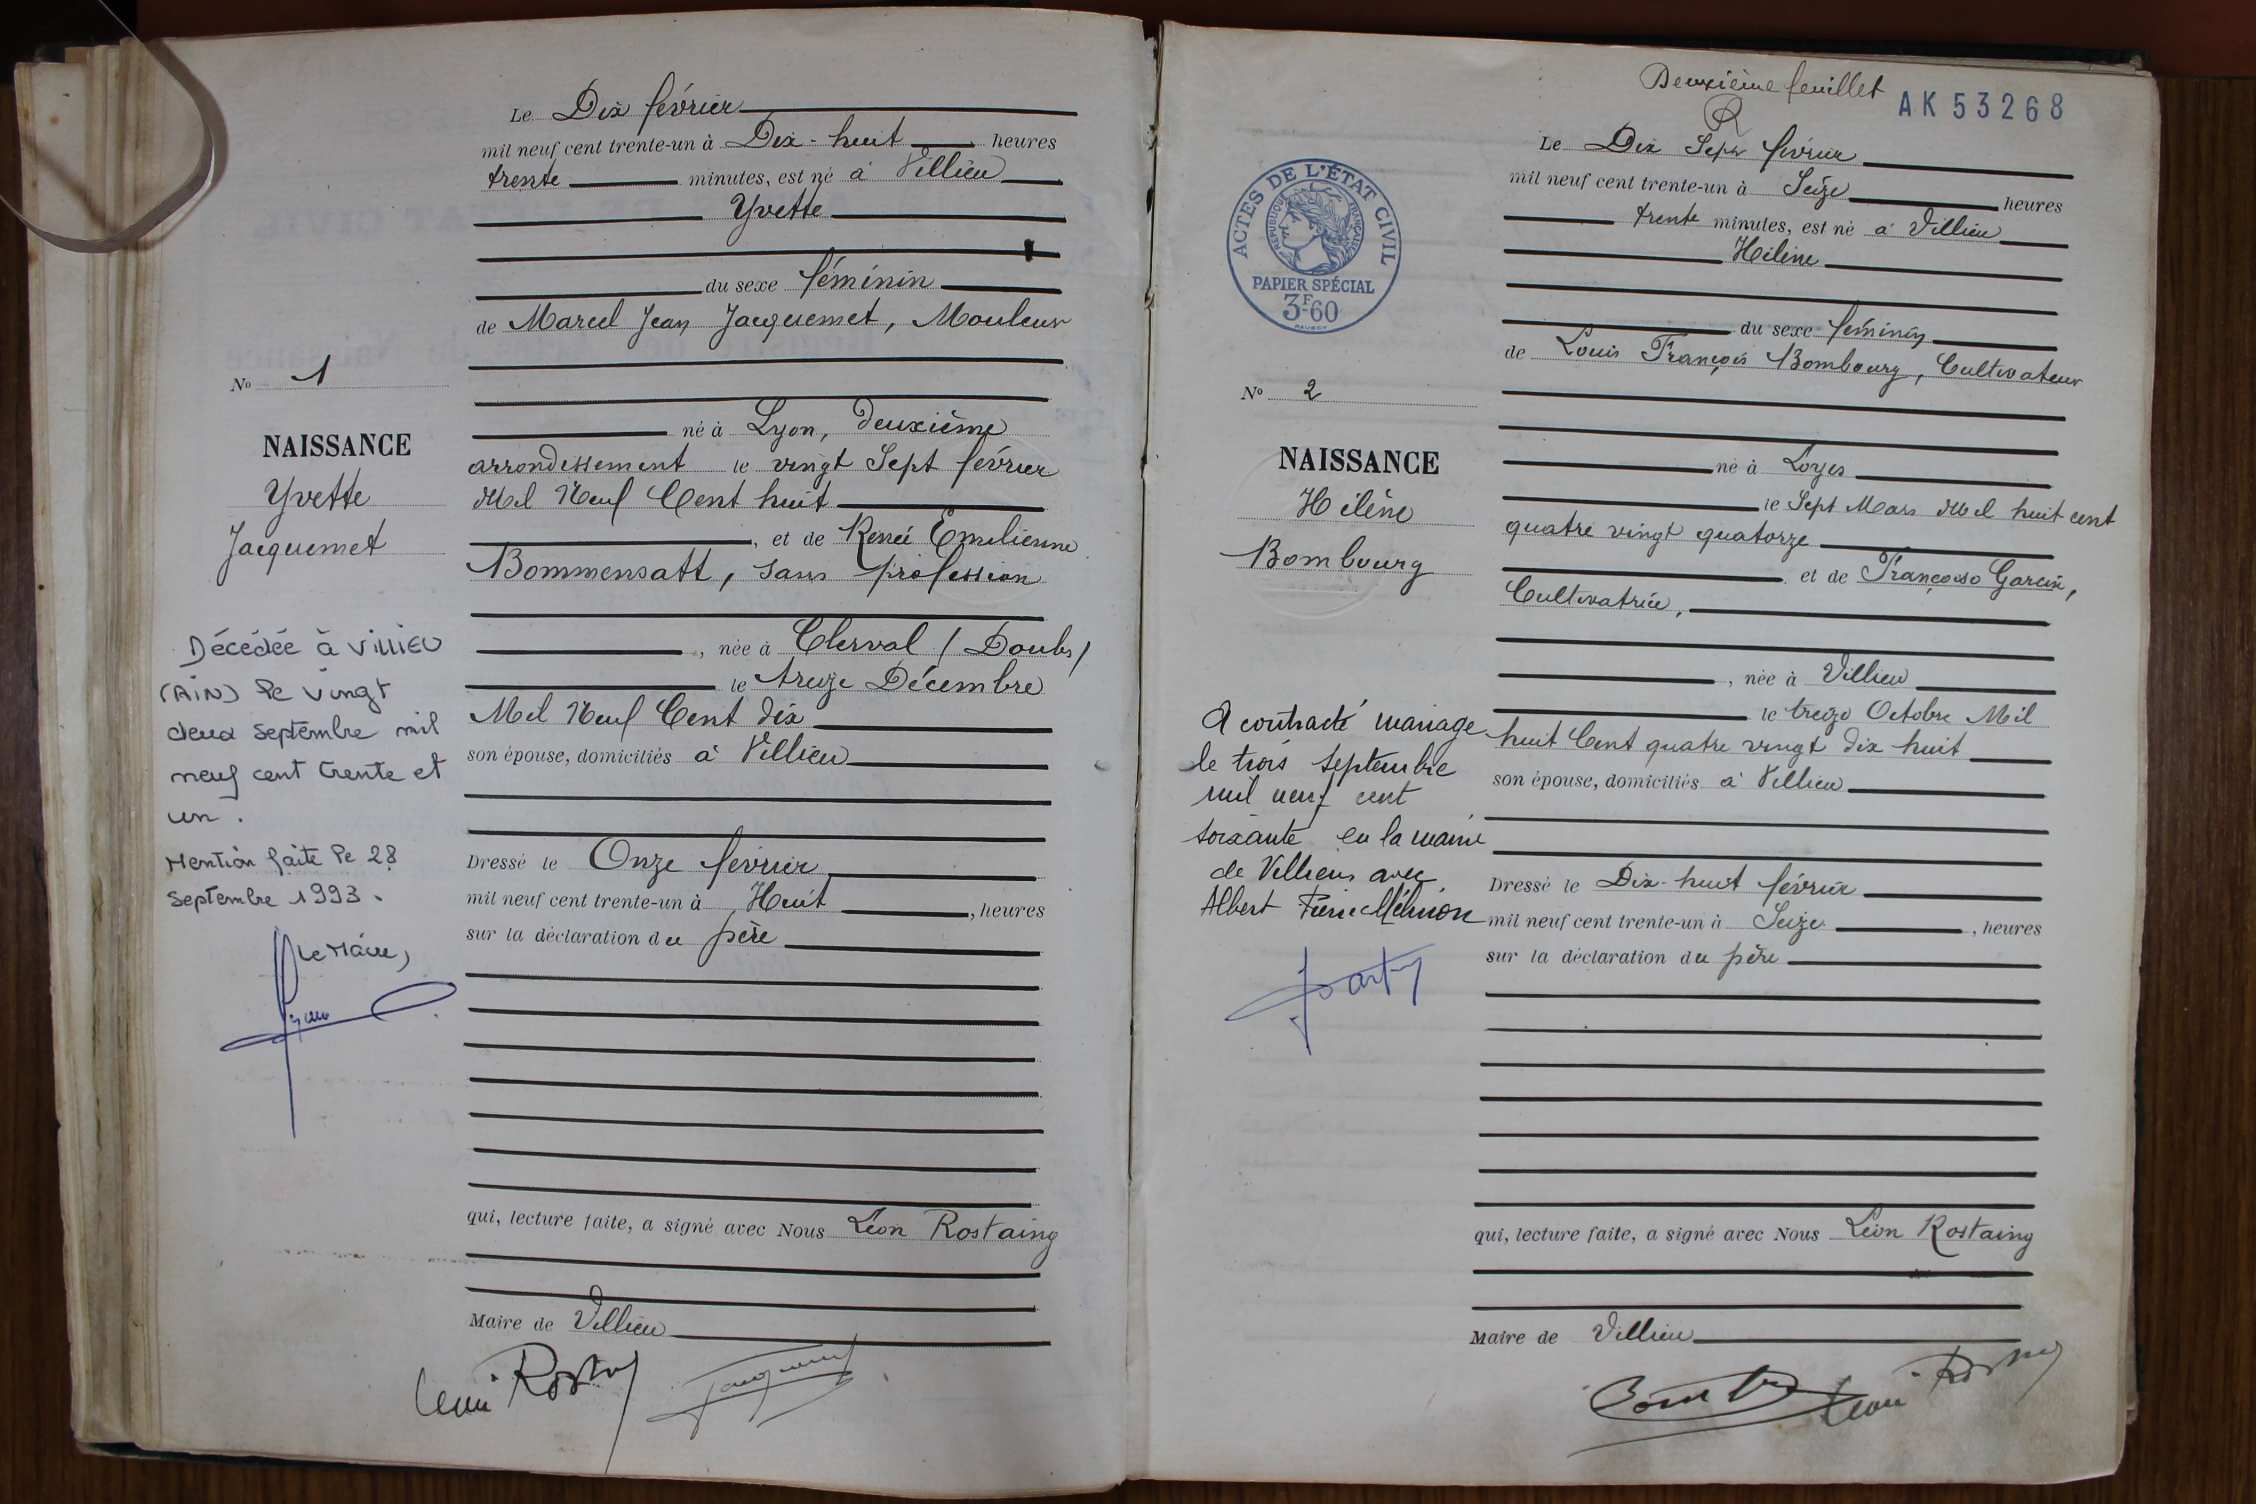 Le Dix février
mil neuf cent trente-un à Dix-huit heures
trente minutes, est né à Villieu
Yvette
du sexe féminin
de Marcel Jean Jacquemet, Mouleur
No 1
NAISSANCE
Yvette
Jacquemet
né à Lyon, Deuxième
arrondissement le vingt Sept février
Mil Neuf Cent huit
, et de Renée Emilienne
Bommensatt, sans profession
, née à Clerval (Doubs)
le treize Décembre
Mil Neuf Cent dix
son épouse, domiciliés à Villieu
Dressé le Onze février
mil neuf cent trente-un à Huit , heures
sur la déclaration du père
qui, lecture faite, a signé avec Nous Léon Rostaing
Maire de Villieu
Décédée à Villieu
(AIN) le vingt
deux septembre mil
neuf cent trente et
un.
Mention faite le 28
septembre 1993.
Le Maire,
Jacquemet
Deuxième feuillet
AK 53268
ACTES DE L'ÉTAT CIVIL
RÉPUBLIQUE FRANÇAISE
PAPIER SPÉCIAL
3F60
Le Dix Sept février
mil neuf cent trente-un à Seize heures
trente minutes, est né à Villieu
Hélène
du sexe féminin
de Louis François Bombourg, Cultivateur
No 2
NAISSANCE
Hélène
Bombourg
né à Loyes
le Sept Mars Mil huit cent
quatre vingt quatorze
et de Françoise Garcin,
Cultivatrice,
, née à Villieu
le treize Octobre Mil
huit Cent quatre vingt dix huit
son épouse, domiciliés à Villieu
Dressé le Dix-huit février
mil neuf cent trente-un à Seize , heures
sur la déclaration du père
qui, lecture faite, a signé avec Nous Léon Rostaing
Maire de Villieu
A contracté mariage
le trois septembre
mil neuf cent
soixante en la mairie
de Villieu avec
Albert Pierre